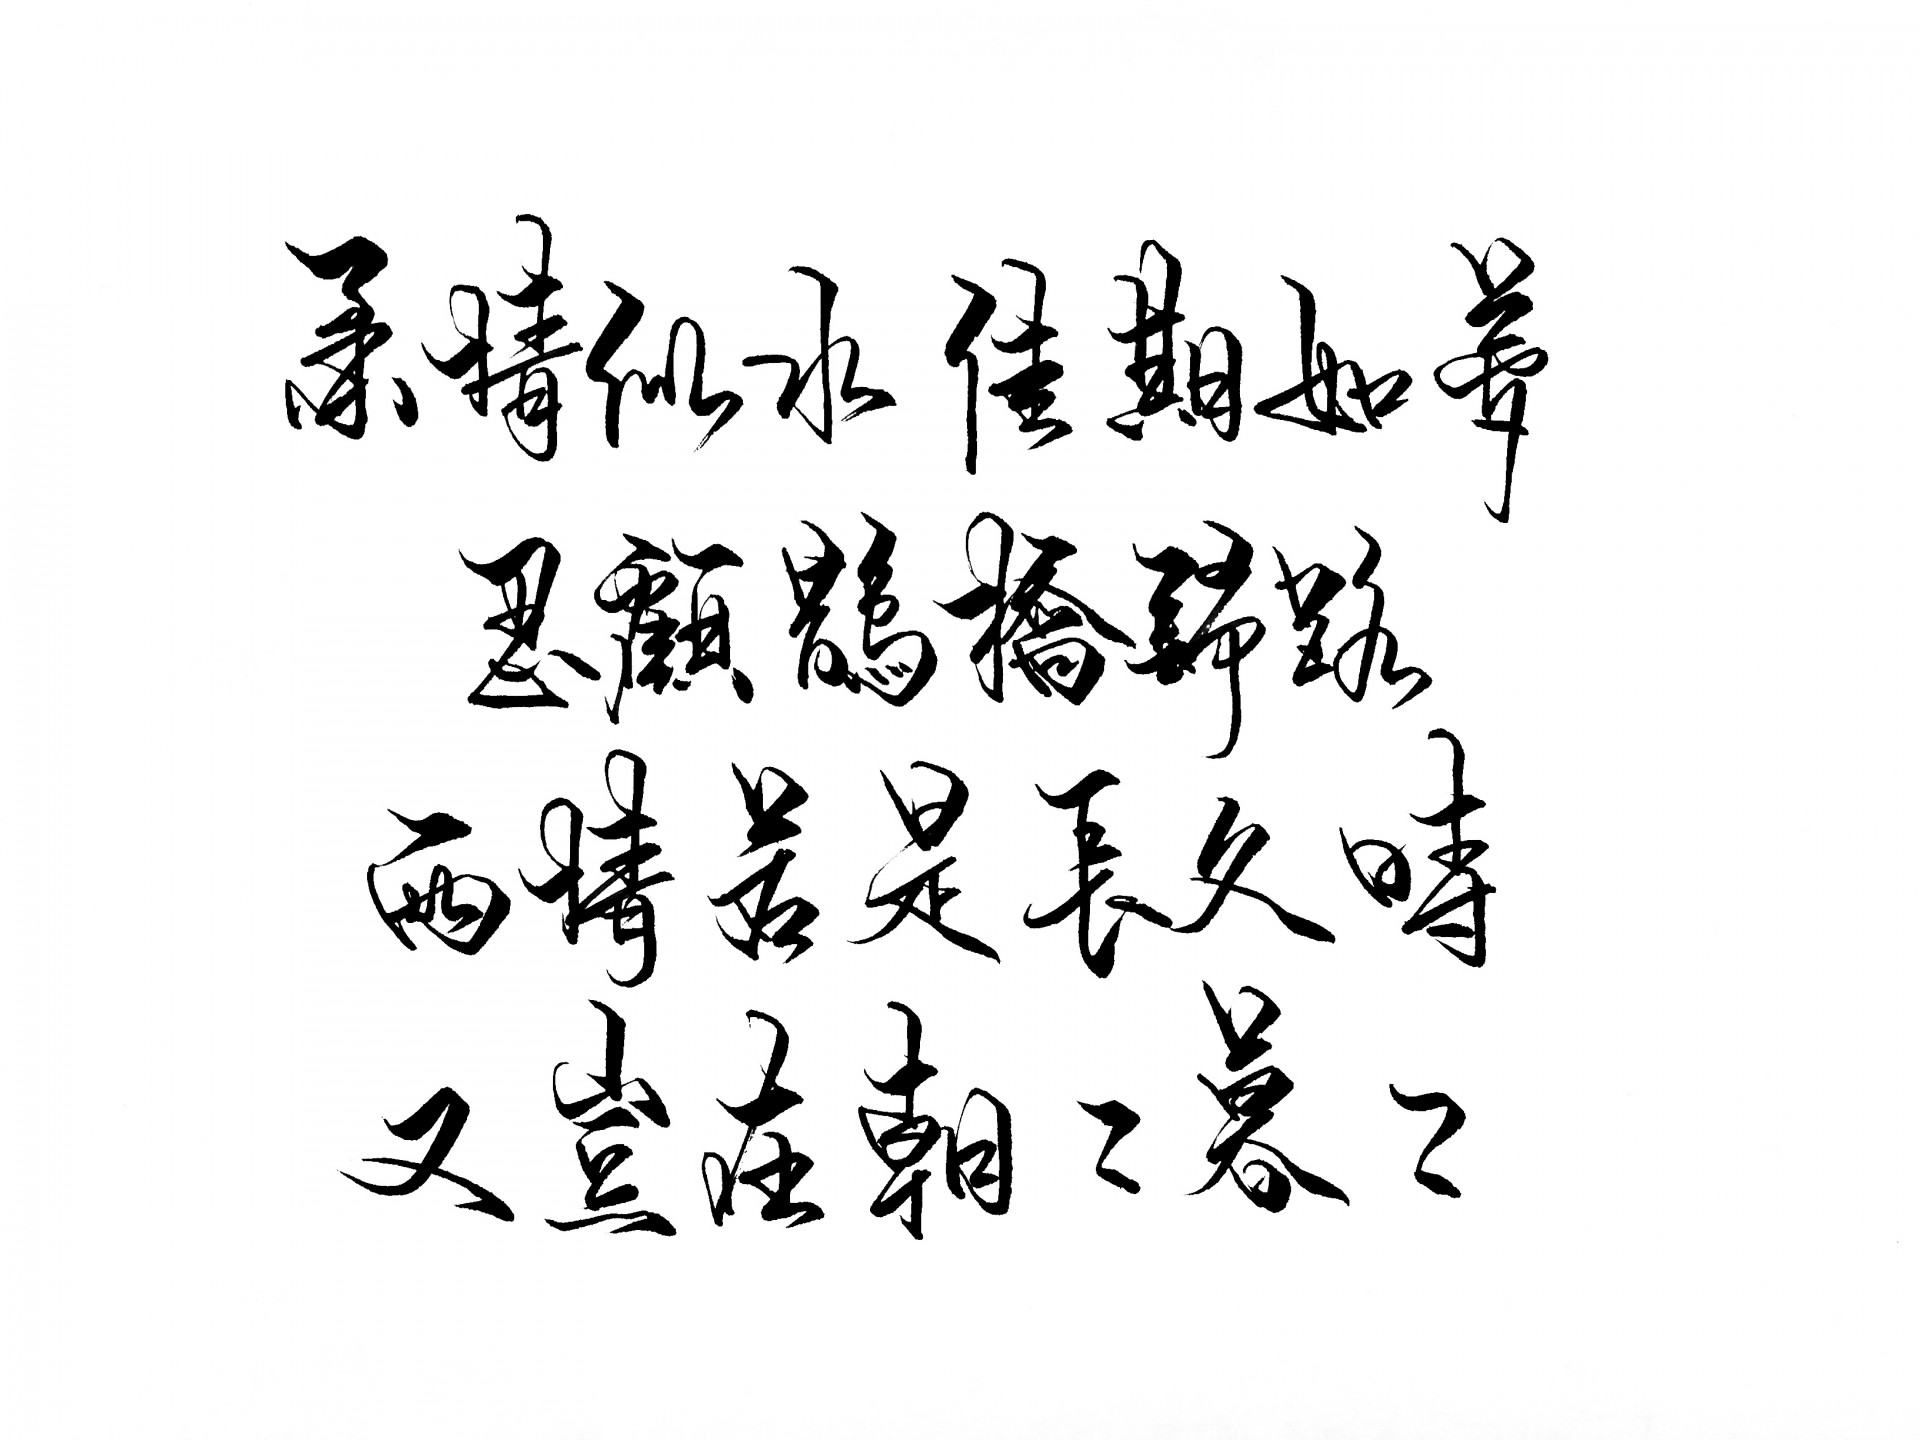 柔情似水 佳期如夢
忍顧鵲橋歸路
兩情若是長久時
又豈在朝〻暮〻